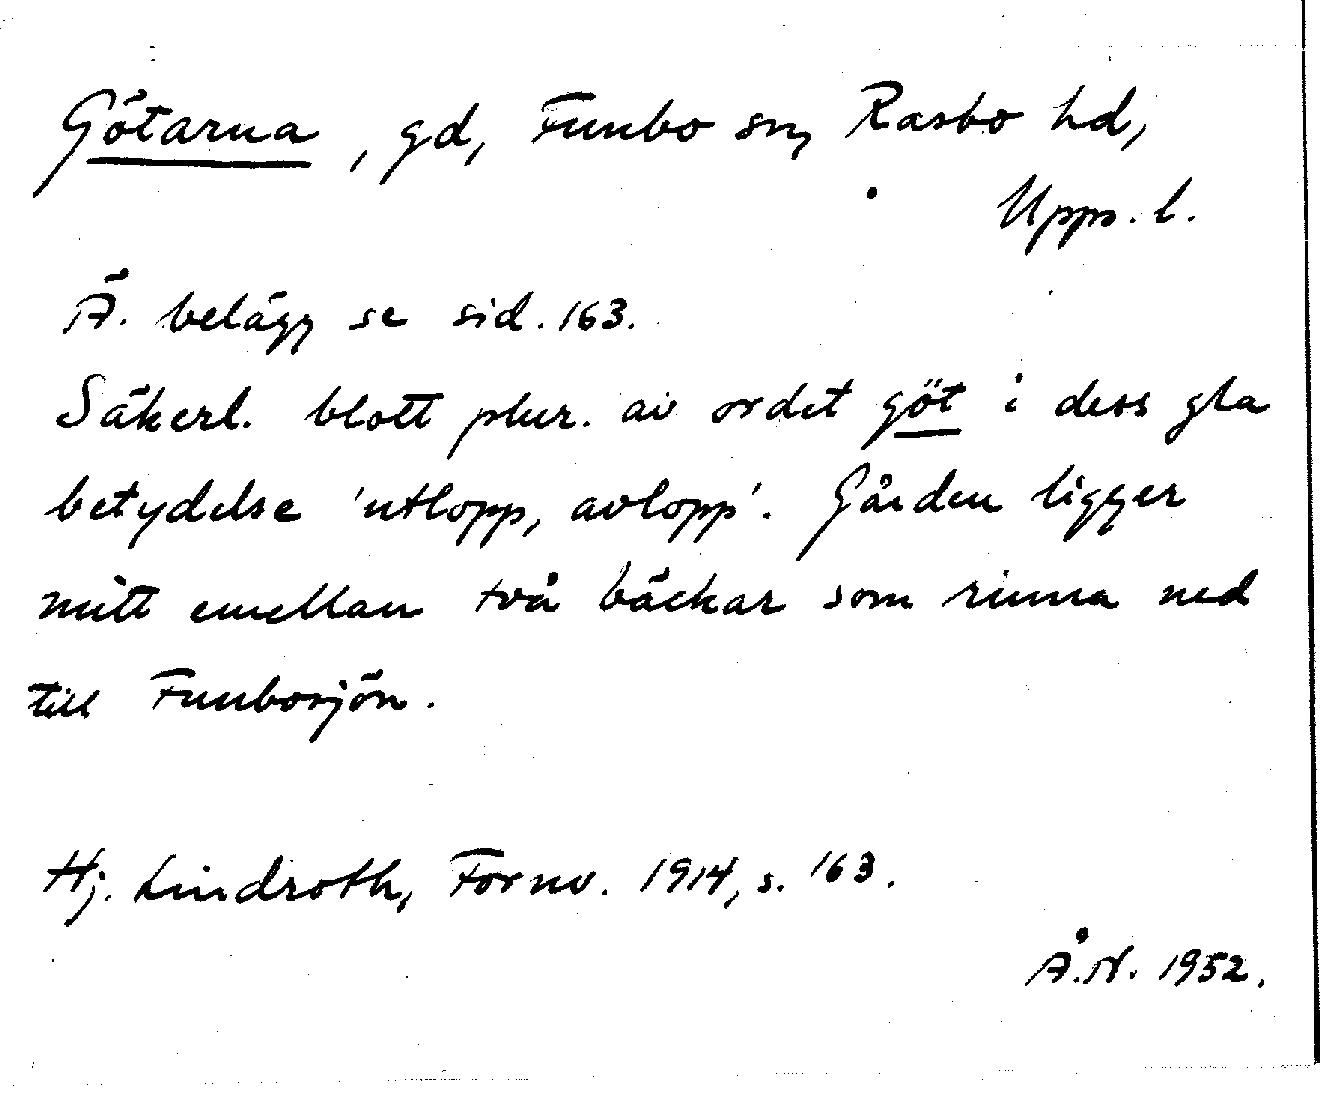 Götarna, gd, Funbo sn, Rasbo hd,
Upps. l.
Ä. belägg se sid. 163.
Säkerl. blott plur. av ordet göt i dess gla
betydelse 'utlopp, avlopp'. Gården ligger
mitt emellan två bäckar som rinna ned
till Funbosjön.
Hj. Lindroth, Fornv. 1914, s. 163.
Å.N. 1952.